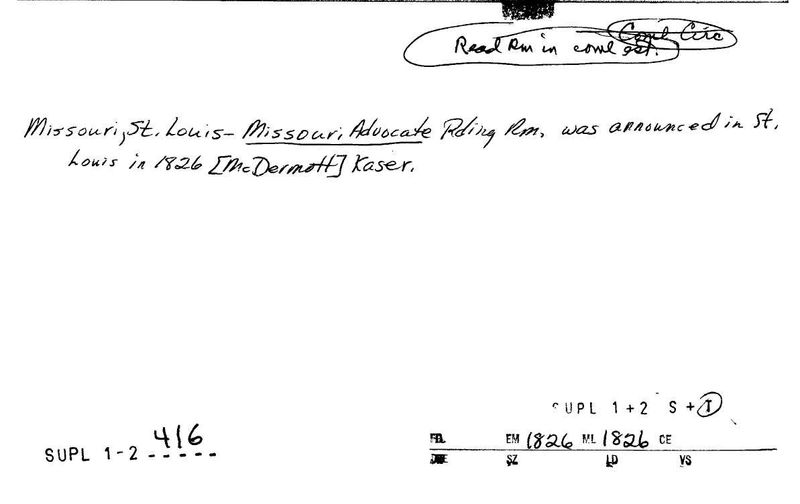 Coml Circ
Read Rm in coml est.
Missouri, St. Louis – Missouri Advocate Rding Rm, was announced in St.
Louis in 1826 [McDermott] Kaser.
SUPL 1+2 S + I
SUPL 1-2 416
EM 1826 ML 1826 CE
SZ LD VS